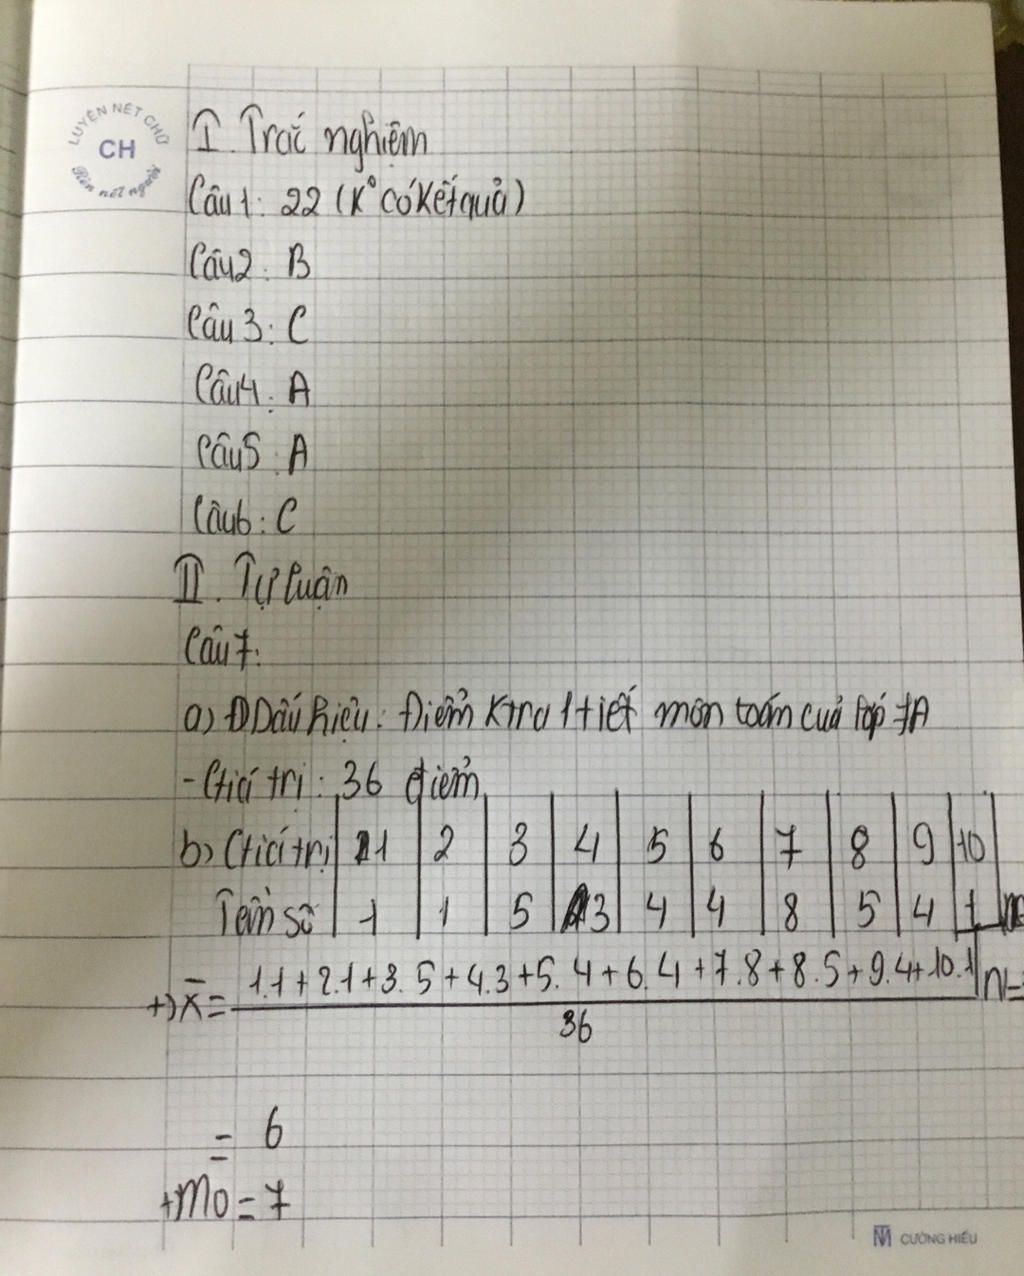 LUYỆN NÉT CHỮ
CH
Rèn nết người
I. Trắc nghiệm
Câu 1: 22 (K° có kết quả)
Câu 2: B
Câu 3: C
Câu 4: A
Câu 5: A
Câu 6: C
II. Tự luận
Câu 7:
a) Dấu hiệu: Điểm Ktra 1 tiết môn toán của lớp 7A
- Giá trị: 36 điểm
b) Giá trị | 1 | 2 | 3 | 4 | 5 | 6 | 7 | 8 | 9 | 10
Tần số | 1 | 1 | 5 | 3 | 4 | 4 | 8 | 5 | 4 | 1
+) X̄ = 1.1+2.1+3.5+4.3+5.4+6.4+7.8+8.5+9.4+10.1 | N=
36
= 6
+ M0 = 7
CƯỜNG HIẾU